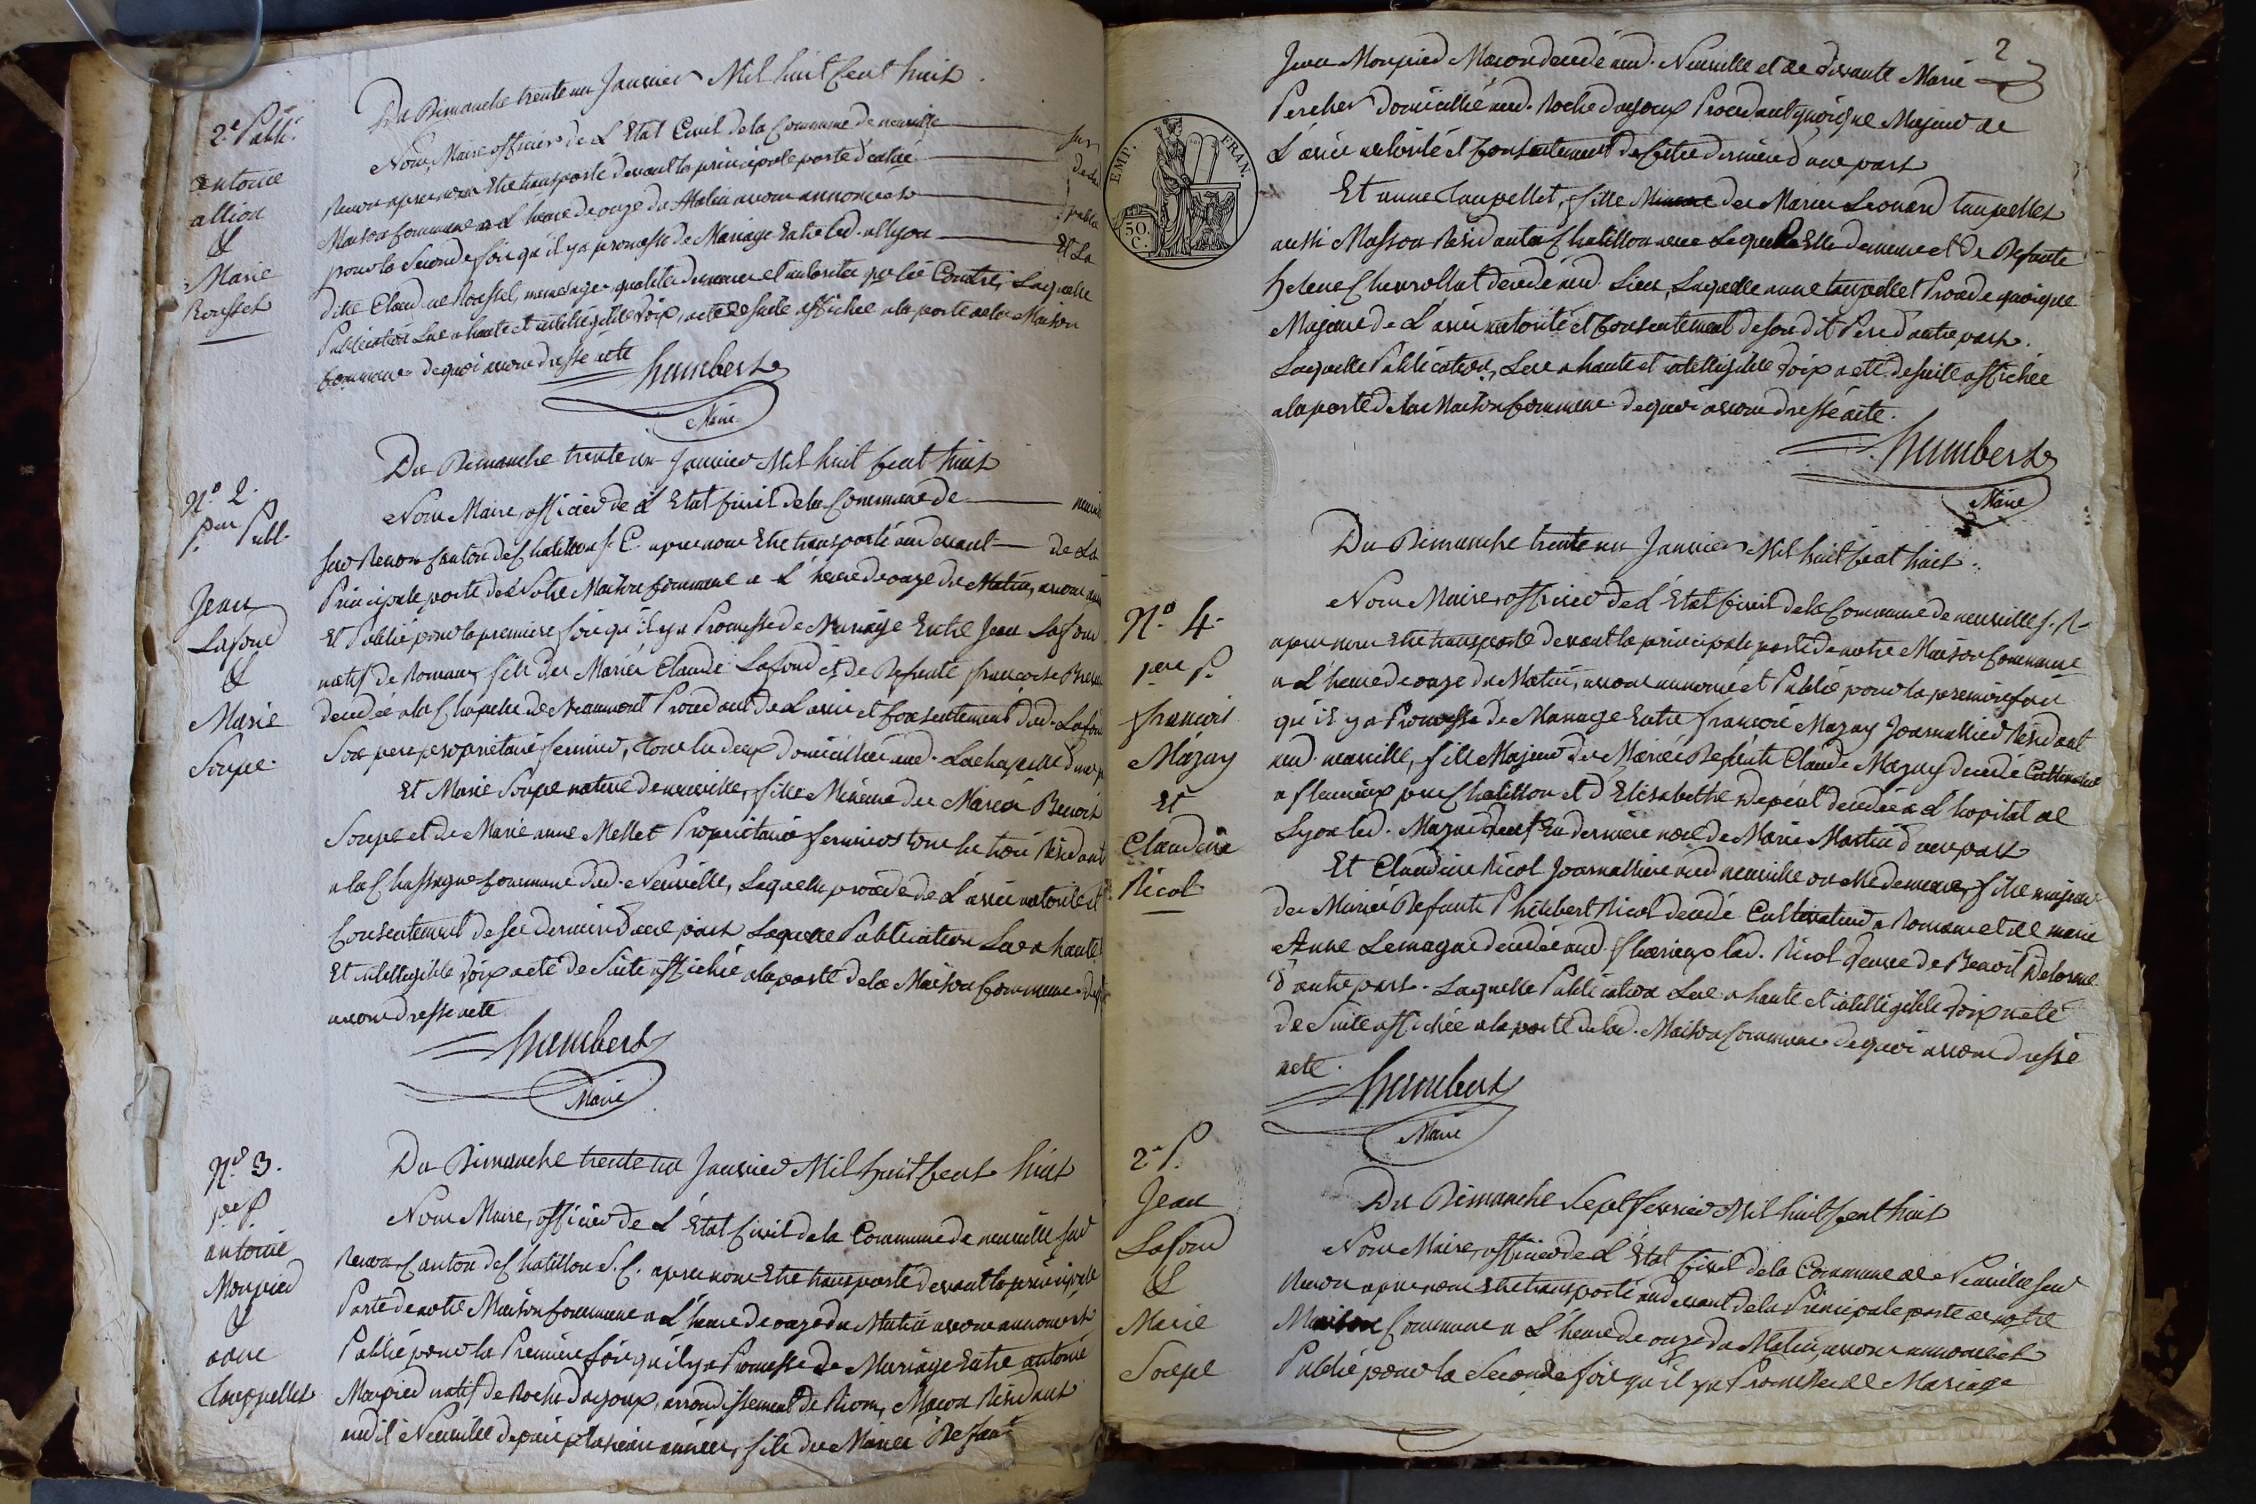 2.e Publ.
antoine
allion
&
Marie
Rousset
Du Dimanche trente un Janvier Mil huit Cent huit.
Nous, Maire officier de L'Etat Civil de la Commune de neuville sur
Renon apres nous Etre transporté devant la principale porte d'entrée de la
Maison Commune a L'heure de onze du Matin avons annoncés publié
pour la Seconde fois qu'il y a promesse de Mariage Entre led. allyon Et La
dite Claud.ne Roussel, menage, qualité demeure et autorité par lié Contre, Laquelle
Publication Lue a haute et intelligible Voix, a eté de suite affichée a la porte de la Maison
Commune de quoi avons dressé acte
humbert
Maire
N.o 2.
P.ere Publ.
Jean
Lafond
&
Marie
Soupe.
Du Dimanche trente un Janvier Mil huit Cent huit
Nous Maire, officier de L'Etat Civil de la Commune de neuville
sur Renon Canton de Chatillon s. C. apres nous Etre transporté au devant de La
Principale porte de Notre Maison Commune a L'heure de onze du Matin, avons
Et Publié pour la premiere fois qu'il y a Promesse de Mariage Entre Jean Lafond
natif de Romans, fils des Mariés Claude Lafond et de Defunte francoise
decedée a la Chapelle de Neaumont Procedant de L'avis et Consentement dud. Lafond
Son pere proprietaire fermier, tous les deux domiciliés aud. Lachapelle d'une p.
Et Marie Soupe native de neuville, fille Mineure des Mariés Benoit
Soupe et de Marie anne Mellet Proprietaires fermiers tous les trois Residant
a la Chassagne Commune dud. Neuville, Laquelle procede de L'avis autorité et
Consentement de ses derniers d'autre part Laquelle Publication Lue a haute
Et intelligible Voix a eté de Suite affichée a la porte de la Maison Commune
avons dressé acte
humbert
Maire
N.o 3.
1.ere P.
antoine
Monpied
&
anne
Taupellet
Du Dimanche trente un Janvier Mil huit Cent huit
Nous Maire, officier de L'Etat Civil de la Commune de neuville sur
Renon, Canton de Chatillon S. C. apres nous Etre transporté devant la principale
Porte de notre Maison Commune a L'heure de onze du Matin avons annoncé et
Publié pour la Premiere fois qu'il y a Promesse de Mariage Entre antoine
Monpied natif de Roche Dagoux, arrondissement de Riom, Macon Residant
audit Neuville depuis plusieurs années, fils des Mariés Defunt
2
Jean Monpied Macon decedé aud. Neuville et de vivante Marie
Percher domiciliée aud. Roche dagoux Procedant quoique Majeur de
L'avis autorité et Consentement de Cette derniere d'une part
Et anne Taupellet, fille Mineure des Mariés Leonard taupellet
aussi Masson Residant a Chatillon avec Lequel Elle demeure et de Defunte
helene Chevrollat decedé aud. Lieu, Laquelle anne taupellet Procede quoique
Majeure de L'avis autorité et Consentement de son dit Pere d'autre part.
Laquelle Publication, Lue a haute et intelligible Voix a eté de suite affichée
a la porte de la Maison Commune de quoi avons dressé acte.
humbert
Maire
EMP. FRAN.
50. C.
N.o 4.
1.ere P.
francois
Mazuy
Et
Claudine
Nicol
Du Dimanche trente un Janvier Mil huit Cent huit.
Nous Maire, officier de L'Etat Civil de la Commune de neuville s. R
apres nous Etre transporté devant la principale porte de notre Maison Commune
a L'heure de onze du Matin, avons annoncé et Publié pour la premiere fois
qu'il y a Promesse de Mariage Entre francois Mazuy Journallier Residant
aud. neuville, fils Majeur des Mariés Defunts Claude Mazuy decedé Cultivateur
a fleurieux pres Chatillon et d'Elisabethe Depérit decedée a L'hopital de
Lyon led. Mazui Veuf En derniere noce de Marie Martin d'une part
Et Claudine Nicol Journalliere aud neuville ou Elle demeure, fille majeure
des Mariés Defunts Philibert Nicol decedé Cultivateur a Romans et de marie
Anne Lemague decedée aud. fleurieux lad. Nicol Veuve de Benoit Delorme
d'autre part. Laquelle Publication Lue a haute et intelligible Voix a eté
de Suite affichée a la porte de lad. Maison Commune de quoi avons dressé
acte.
humbert
Maire
2.e P.
Jean
Lafond
&
Marie
Soupe
Du Dimanche Sept fevrier Mil huit Cent huit
Nous Maire, officier de L'Etat Civil de la Commune de Neuville sur
Renon apres nous Etre transporté au devant de la Principale porte de notre
Maison Commune a L'heure de onze du Matin, avons annoncé et
Publié pour la Seconde fois qu'il y a Promesse de Mariage